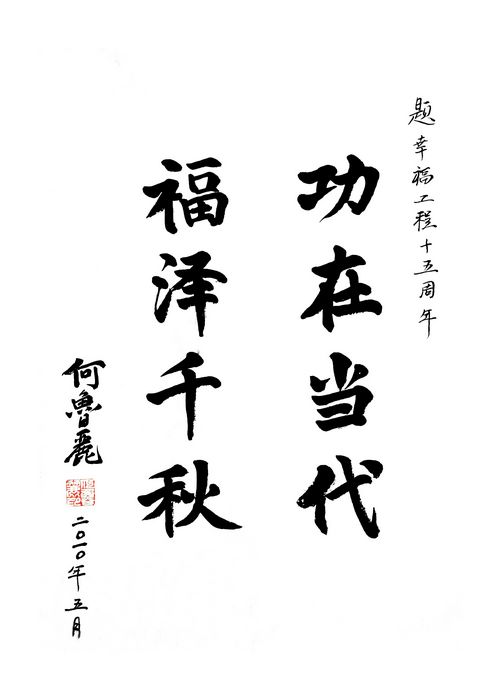 题幸福工程十五周年
功在当代
福泽千秋
何魯麗
二〇一〇年五月